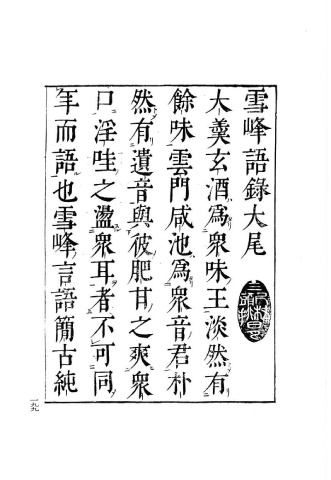 雪峰語錄大尾
大羹玄酒爲衆味王淡然有
餘味雲門咸池爲衆音君朴
然有遺音與彼肥甘之爽衆
口淫哇之盪衆耳者不可同
年而語也雪峰言語簡古純
一九九